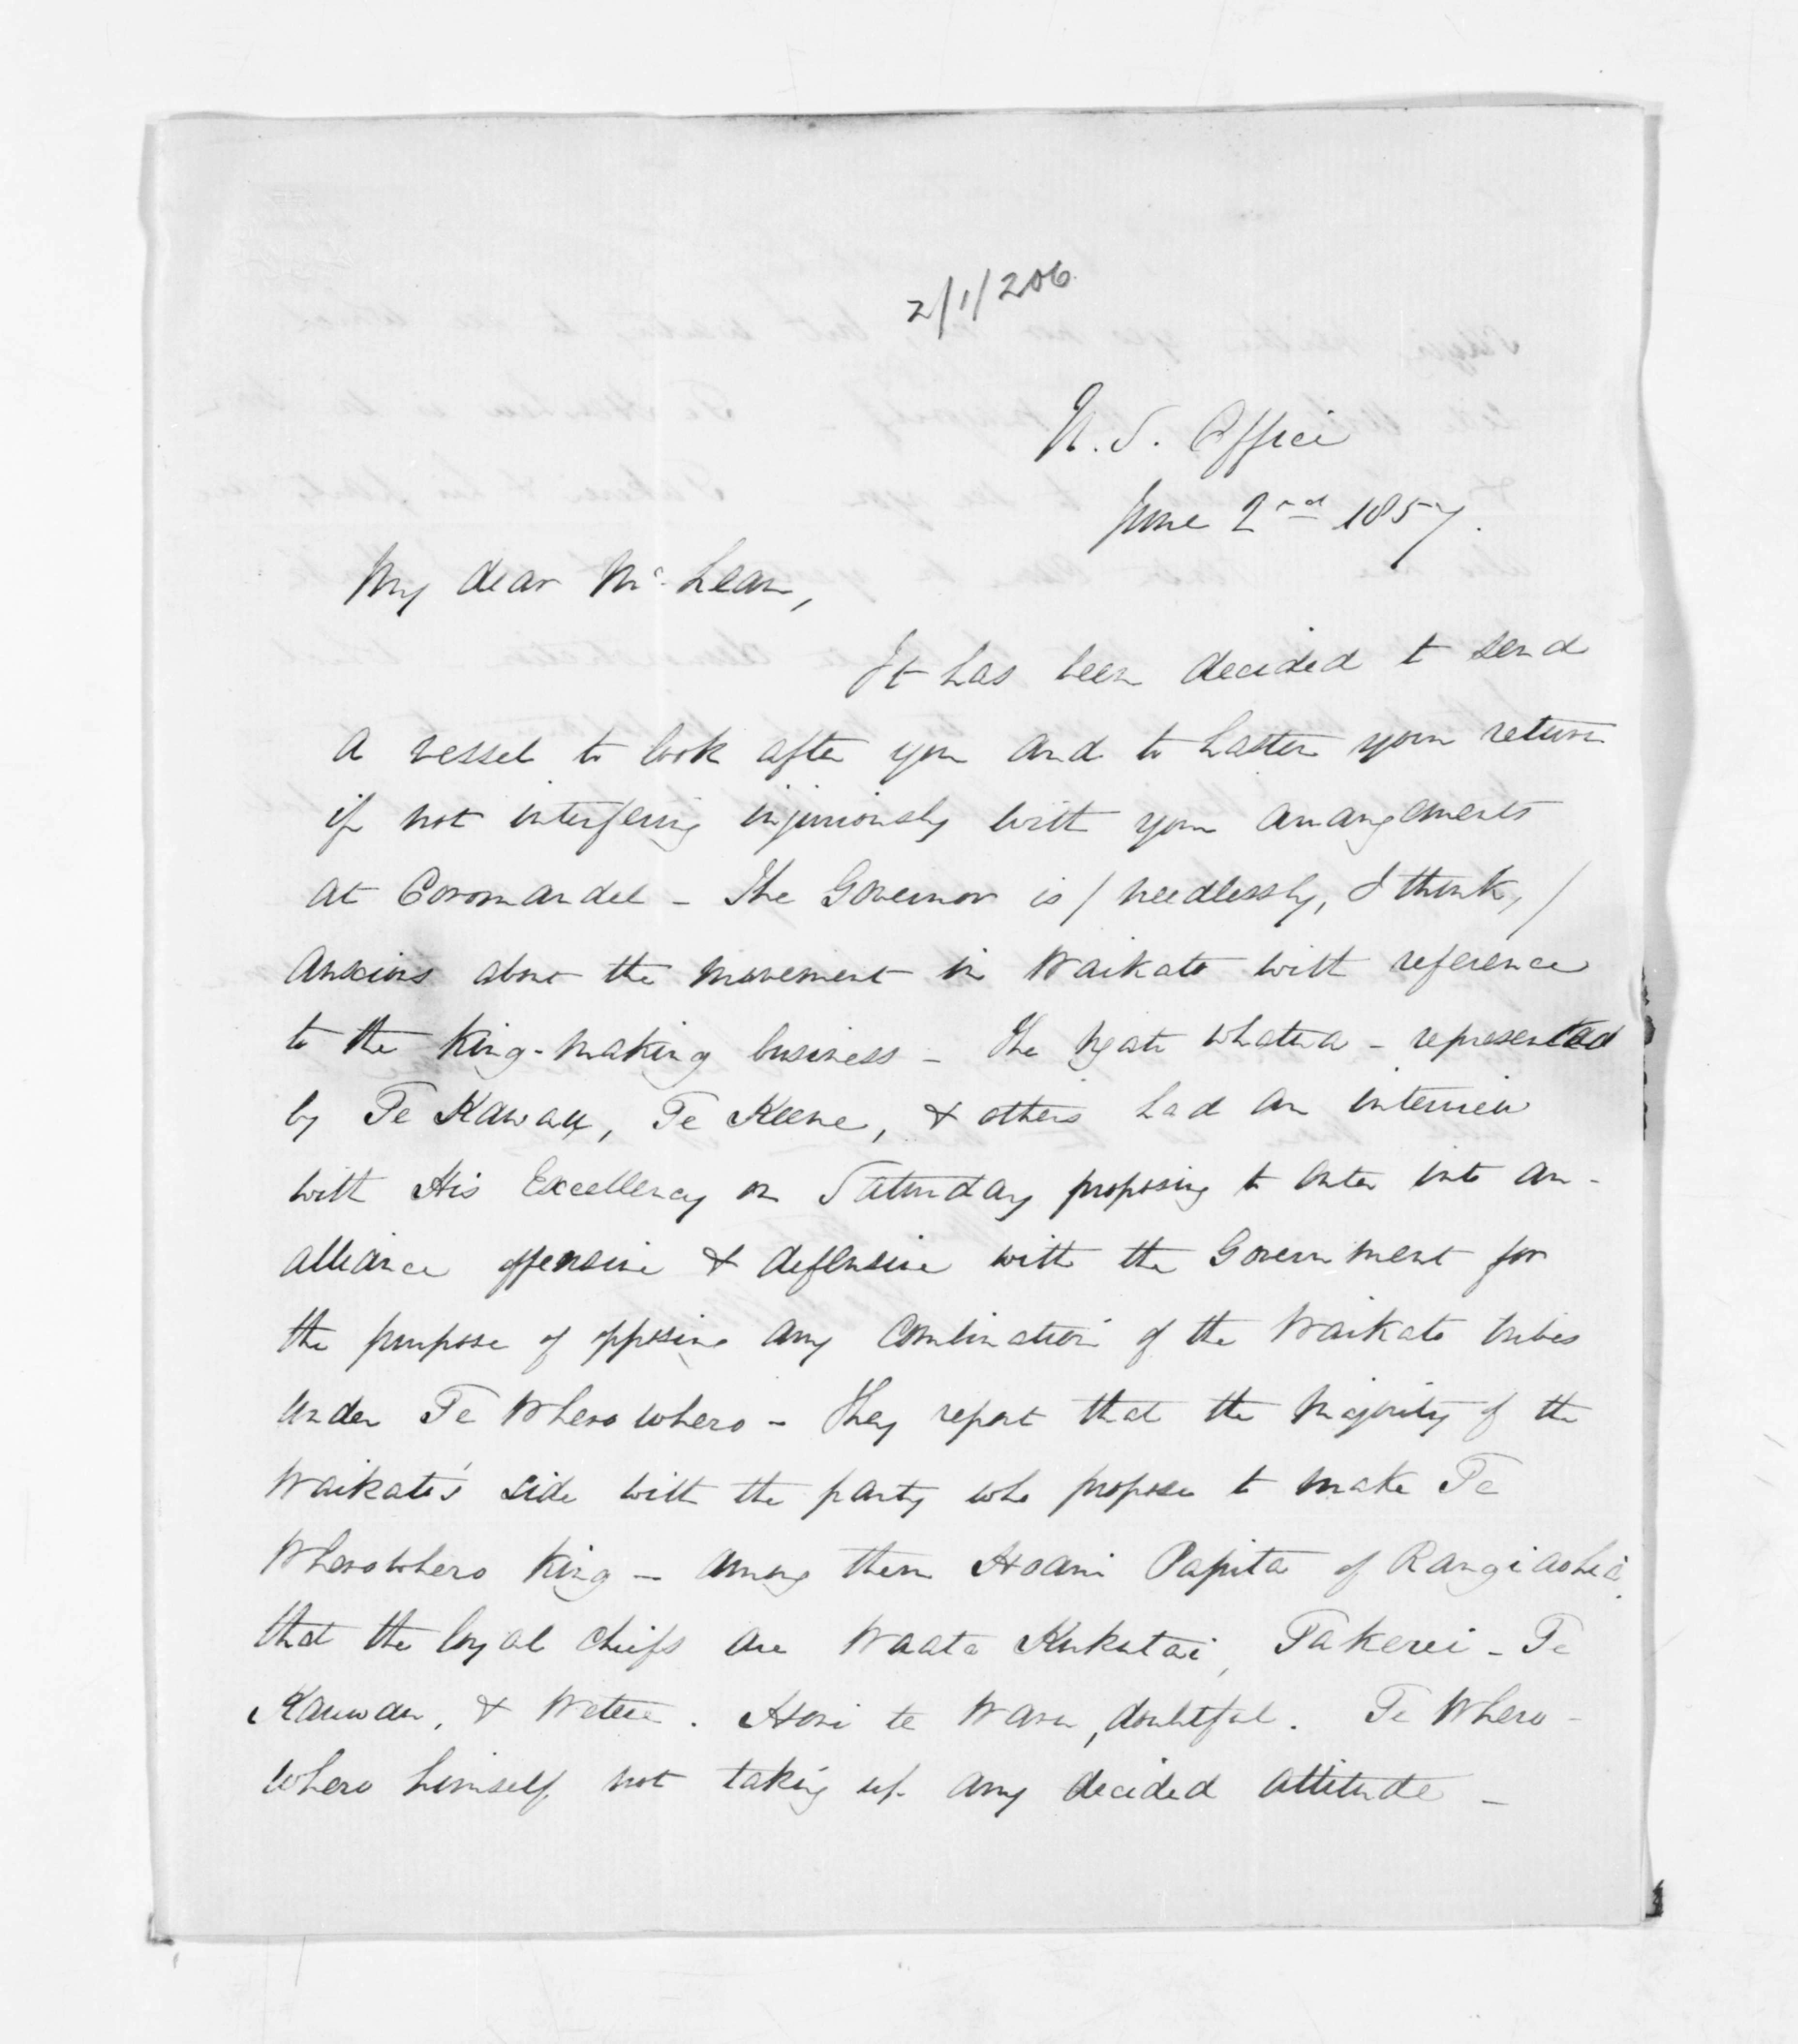 2/1/206.
N. S. Office
June 2nd 1857.
My dear McLean,
It has been decided to send
a vessel to look after you and to hasten your return
if not interfering injuriously with your arrangements
at Coromandel - The Governor is / needlessly, I think, /
anxious about the movement in Waikato with reference
to the King-making business - The Ngati Whatua - represented
by Te Kawau, Te Keene, & others had an interview
with His Excellency on Saturday proposing to enter into an
alliance offensive & defensive with the Government for
the purpose of opposing any combination of the Waikato tribes
under Te Wherowhero - They report that the majority of the
Waikato's side with the party who propose to make Te
Wherowhero King - among them Hoani Papita of Rangiaohia
that the loyal chiefs are Waata Kukutai, Takerei - Te
Rauwau, & Wetere. Hori te Waru, doubtful. Te Whero-
whero himself not taking up any decided attitude -